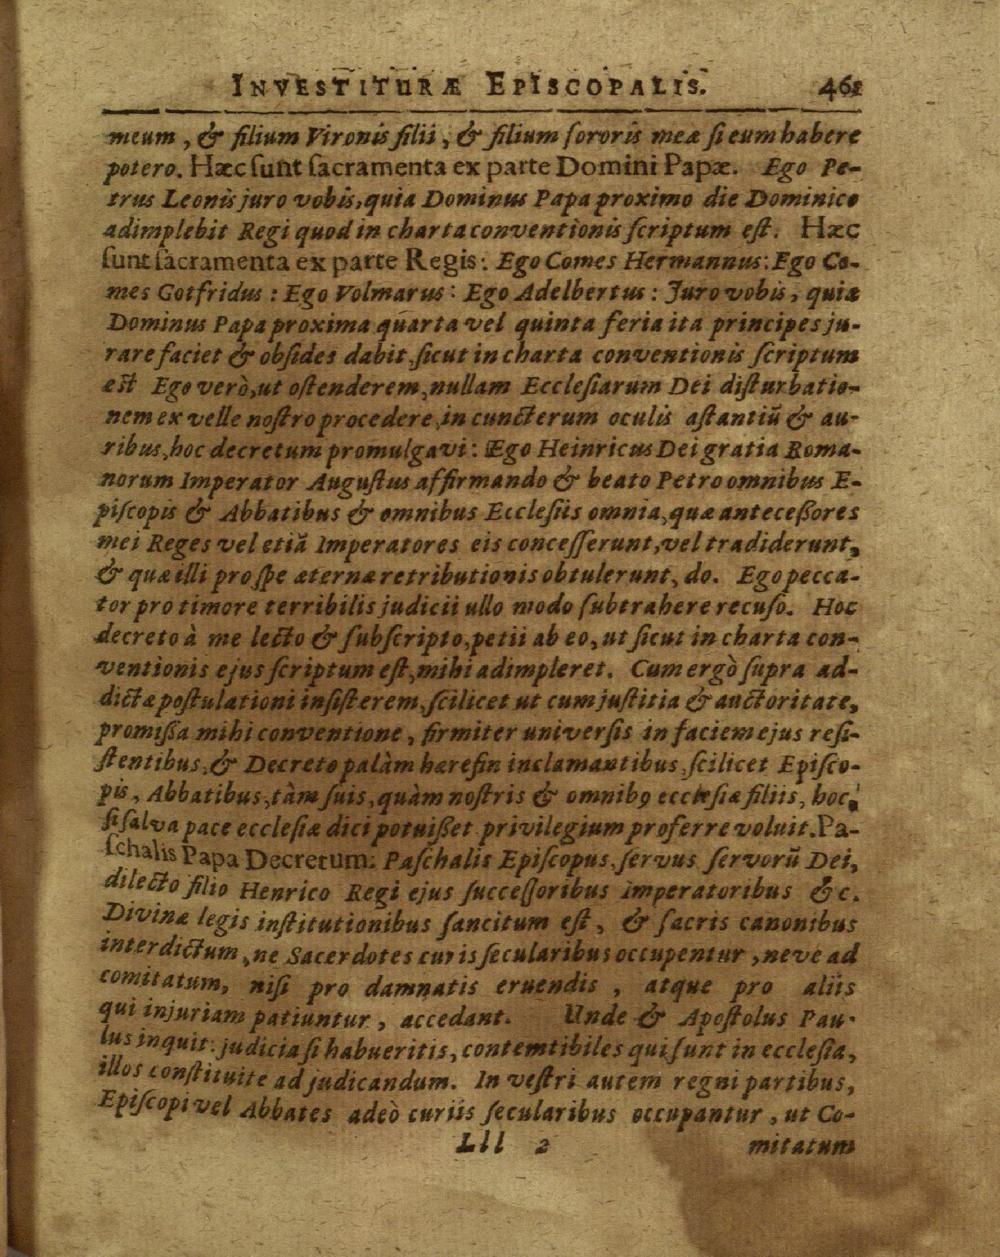 INVESTITURÆ EPISCOPALIS. 461
meum, & filium Vironis filii, & filium ſororis meæ ſi eum habere
potero. Hæc ſunt ſacramenta ex parte Domini Papæ. Ego Pe-
trus Leonis juro vobis, quia Dominus Papa proximo die Dominico
adimplebit Regi quod in charta conventionis ſcriptum eſt. Hæc
ſunt ſacramenta ex parte Regis: Ego Comes Hermannus: Ego Co-
mes Gotfridus: Ego Volmarus: Ego Adelbertus: Juro vobis, quia
Dominus Papa proxima quarta vel quinta feria ita principes ju-
rare faciet & obſides dabit, ſicut in charta conventionis ſcriptum
eſt Ego verò, ut oſtenderem, nullam Eccleſiarum Dei diſturbatio-
nem ex velle noſtro procedere, in cuncterum oculis aſtantiū & au-
ribus, hoc decretum promulgavi: Ego Heinricus Dei gratia Roma-
norum Imperator Auguſtus affirmando & beato Petro omnibus E-
piſcopis & Abbatibus & omnibus Eccleſiis omnia, quæ anteceßores
mei Reges vel etiā Imperatores eis conceſſerunt, vel tradiderunt,
& quæ illi pro ſpe æternæ retributionis obtulerunt, do. Ego pecca-
tor pro timore terribilis judicii ullo modo ſubtrahere recuſo. Hoc
decreto à me lecto & ſubſcripto, petii ab eo, ut ſicut in charta con-
ventionis ejus ſcriptum eſt, mihi adimpleret. Cum ergò ſupra ad-
dictæ poſtulationi inſiſterem, ſcilicet ut cum juſtitia & auctoritate,
promißa mihi conventione, firmiter univerſis in faciem ejus reſi-
ſtentibus, & Decreto palàm hæreſin inclamantibus, ſcilicet Epiſco-
pis, Abbatibus, tàm ſuis, quàm noſtris & omnibꝰ eccleſiæ filiis, hoc,
ſi ſalva pace eccleſiæ dici potuißet privilegium proferre voluit. Pa-
ſchalis Papa Decretum: Paſchalis Epiſcopus, ſervus ſervorū Dei,
dilecto filio Henrico Regi ejus ſucceſſoribus imperatoribus &c.
Divinæ legis inſtitutionibus ſancitum eſt, & ſacris canonibus
interdictum, ne Sacerdotes curis ſecularibus occupentur, neve ad
comitatum, niſi pro damnatis eruendis, atque pro aliis
qui injuriam patiuntur, accedant. Unde & Apoſtolus Pau-
lus inquit: judicia ſi habueritis, contemtibiles qui ſunt in eccleſia,
illos conſtituite ad judicandum. In veſtri autem regni partibus,
Epiſcopi vel Abbates adeò curiis ſecularibus occupantur, ut Co-
Lll 2 mitatum